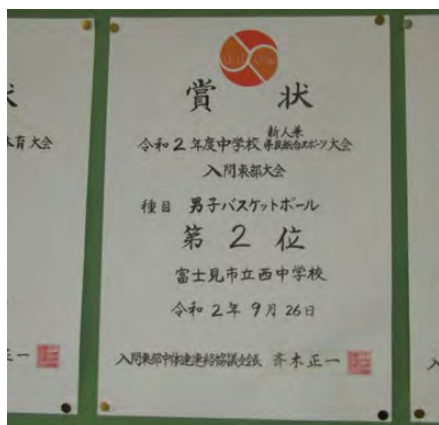 賞状
令和2年度中学校 新人兼県民総合スポーツ大会
入間東部大会
種目 男子バスケットボール
第2位
富士見市立西中学校
令和2年9月26日
入間東部中体連連絡協議会長 斉木正一
状
体育大会
正一